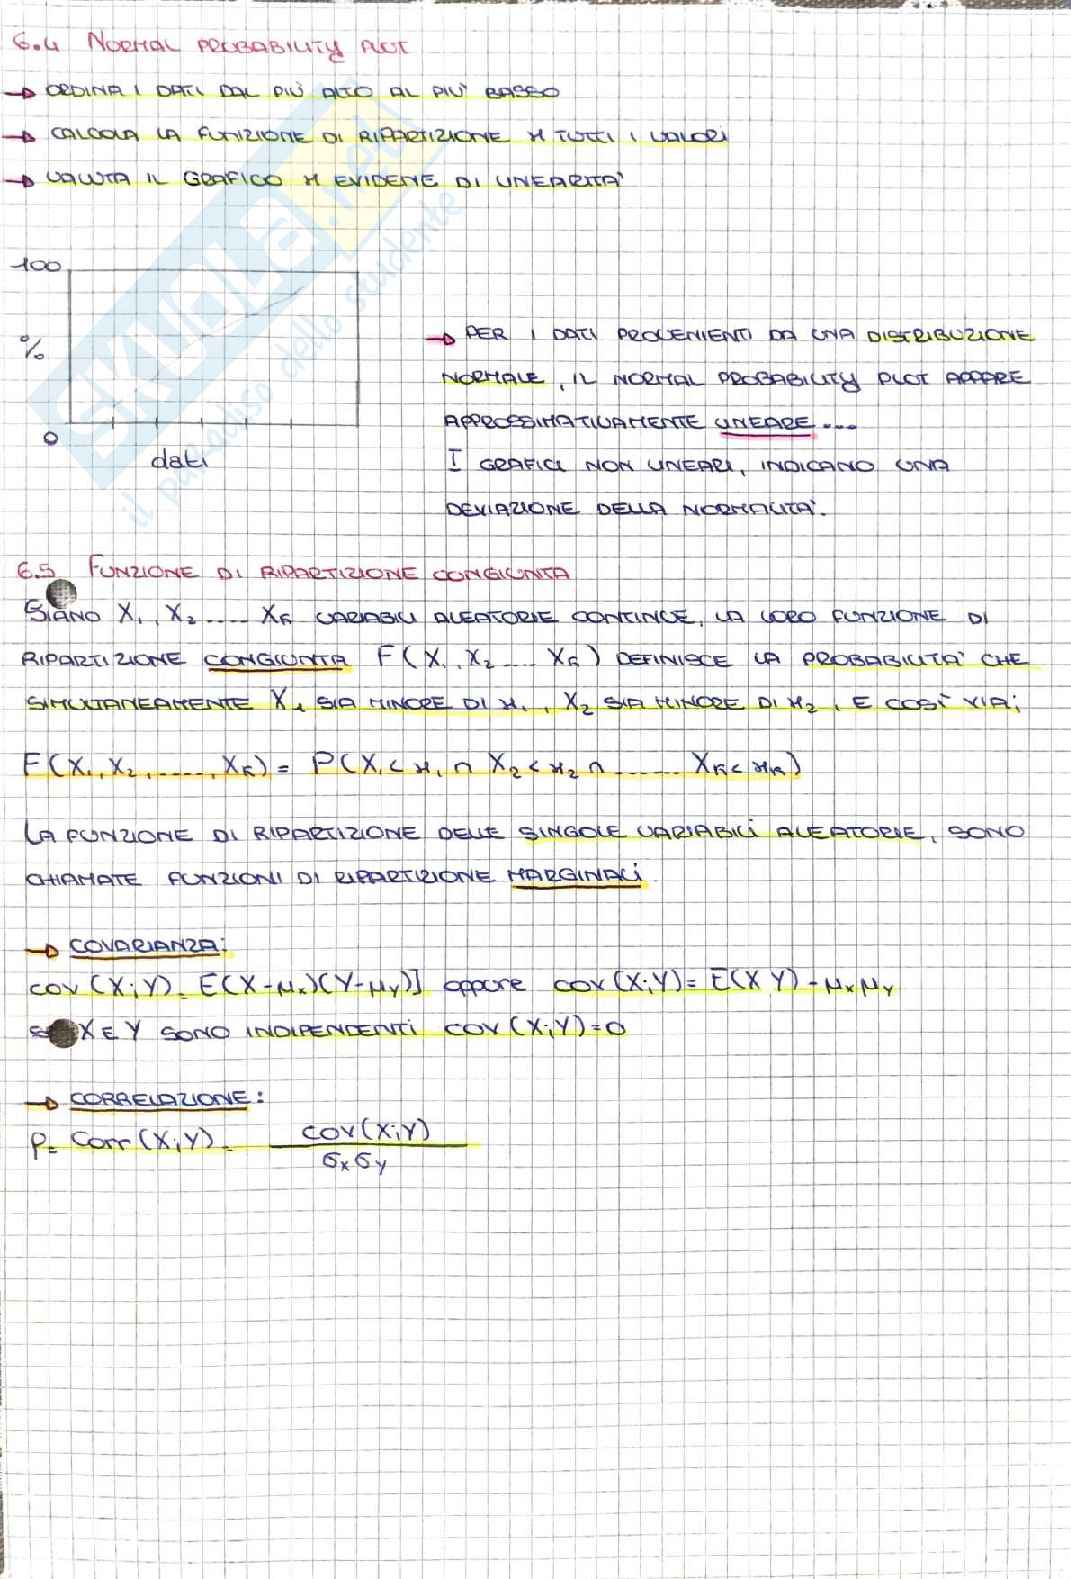 6.4 NORMAL PROBABILITY PLOT
→ ORDINA I DATI DAL PIÙ ALTO AL PIÙ BASSO
→ CALCOLA LA FUNZIONE DI RIPARTIZIONE X TUTTI I VALORI
→ VALUTA IL GRAFICO X EVIDENE DI LINEARITA'
100
%
0
dati
→ PER I DATI PROVENIENTI DA UNA DISTRIBUZIONE
NORMALE, IL NORMAL PROBABILITY PLOT APPARE
APPROSSIMATIVAMENTE LINEARE...
I GRAFICI NON LINEARI, INDICANO UNA
DEVIAZIONE DELLA NORMALITA'.
6.5 FUNZIONE DI RIPARTIZIONE CONGIUNTA
SIANO X₁, X₂ .... Xₖ VARIABILI ALEATORIE CONTINUE, LA LORO FUNZIONE DI
RIPARTIZIONE CONGIUNTA F(X₁, X₂ .... Xₖ) DEFINISCE LA PROBABILITA' CHE
SIMULTANEAMENTE X₁ SIA MINORE DI x₁, X₂ SIA MINORE DI x₂, E COSÌ VIA;
F(X₁, X₂, ....., Xₖ) = P(X₁ < x₁ ∩ X₂ < x₂ ∩ ...... Xₖ < xₖ)
LA FUNZIONE DI RIPARTIZIONE DELLE SINGOLE VARIABILI ALEATORIE, SONO
CHIAMATE FUNZIONI DI RIPARTIZIONE MARGINALI.
→ COVARIANZA:
cov (X;Y) = E(X-μₓ)(Y-μᵧ)] oppure cov (X;Y) = E(X Y) - μₓμᵧ
X E Y SONO INDIPENDENTI cov (X;Y)=0
→ CORRELAZIONE:
ρ = Corr (X;Y) = cov (X;Y)
σₓσᵧ
SKUOLA.net
il paradiso dello studente